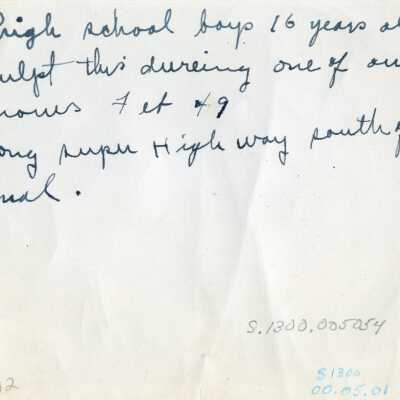 high school boys 16 years ol
ulpt this dureing one of ou
nows 7 et 49
ong super High way south of
nal.
S.1300.005054
S1300
00.05.01